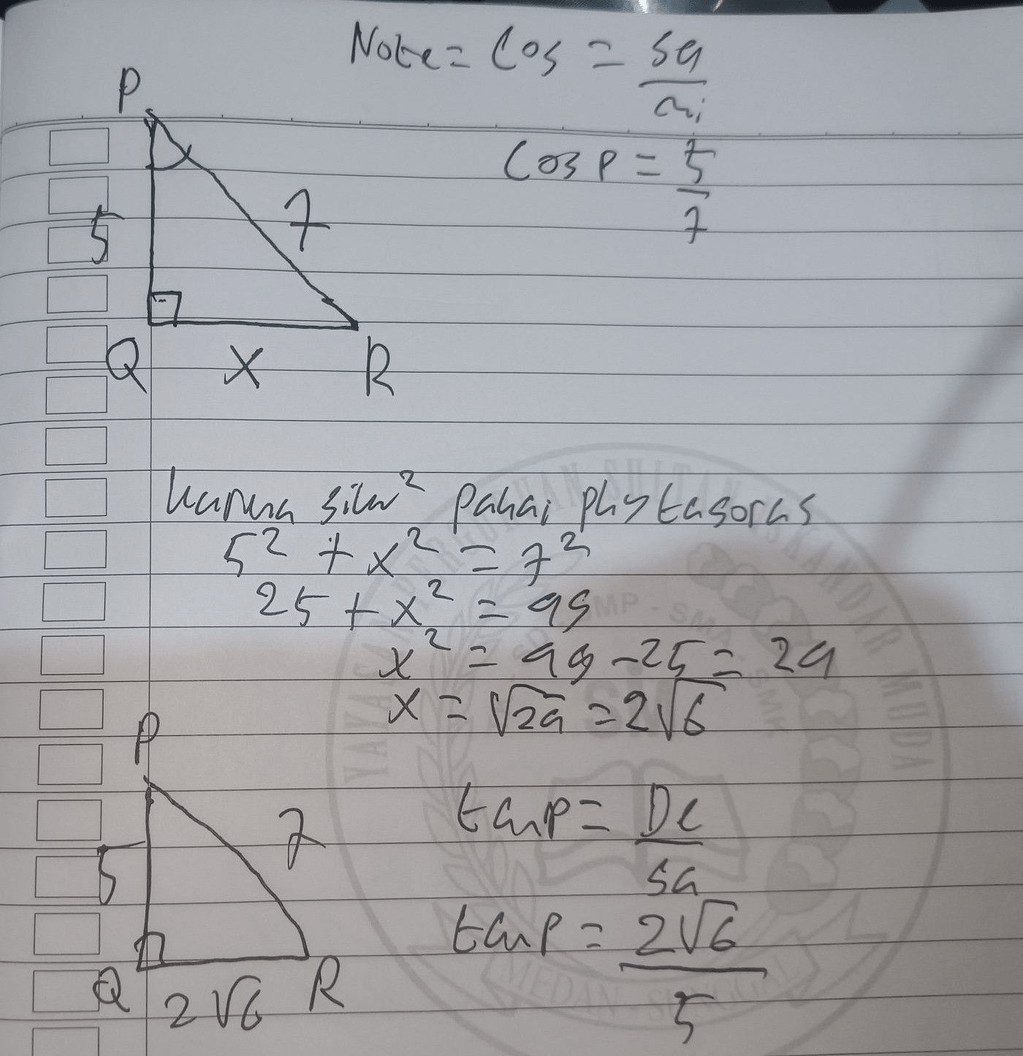 Note = Cos = sa
mi
P
Cos P = 5
7
5
7
Q
X
R
karena siku² pakai phytagoras
5² + x² = 7²
25 + x² = 49
x² = 49 - 25 = 24
x = √24 = 2√6
P
5
7
tan p = De
sa
tan p = 2√6
5
Q
2√6
R
YAYASAN PERGURUAN SULTAN ISKANDAR MUDA
SMP - SMA - SMK
MEDAN - SUNGGAL